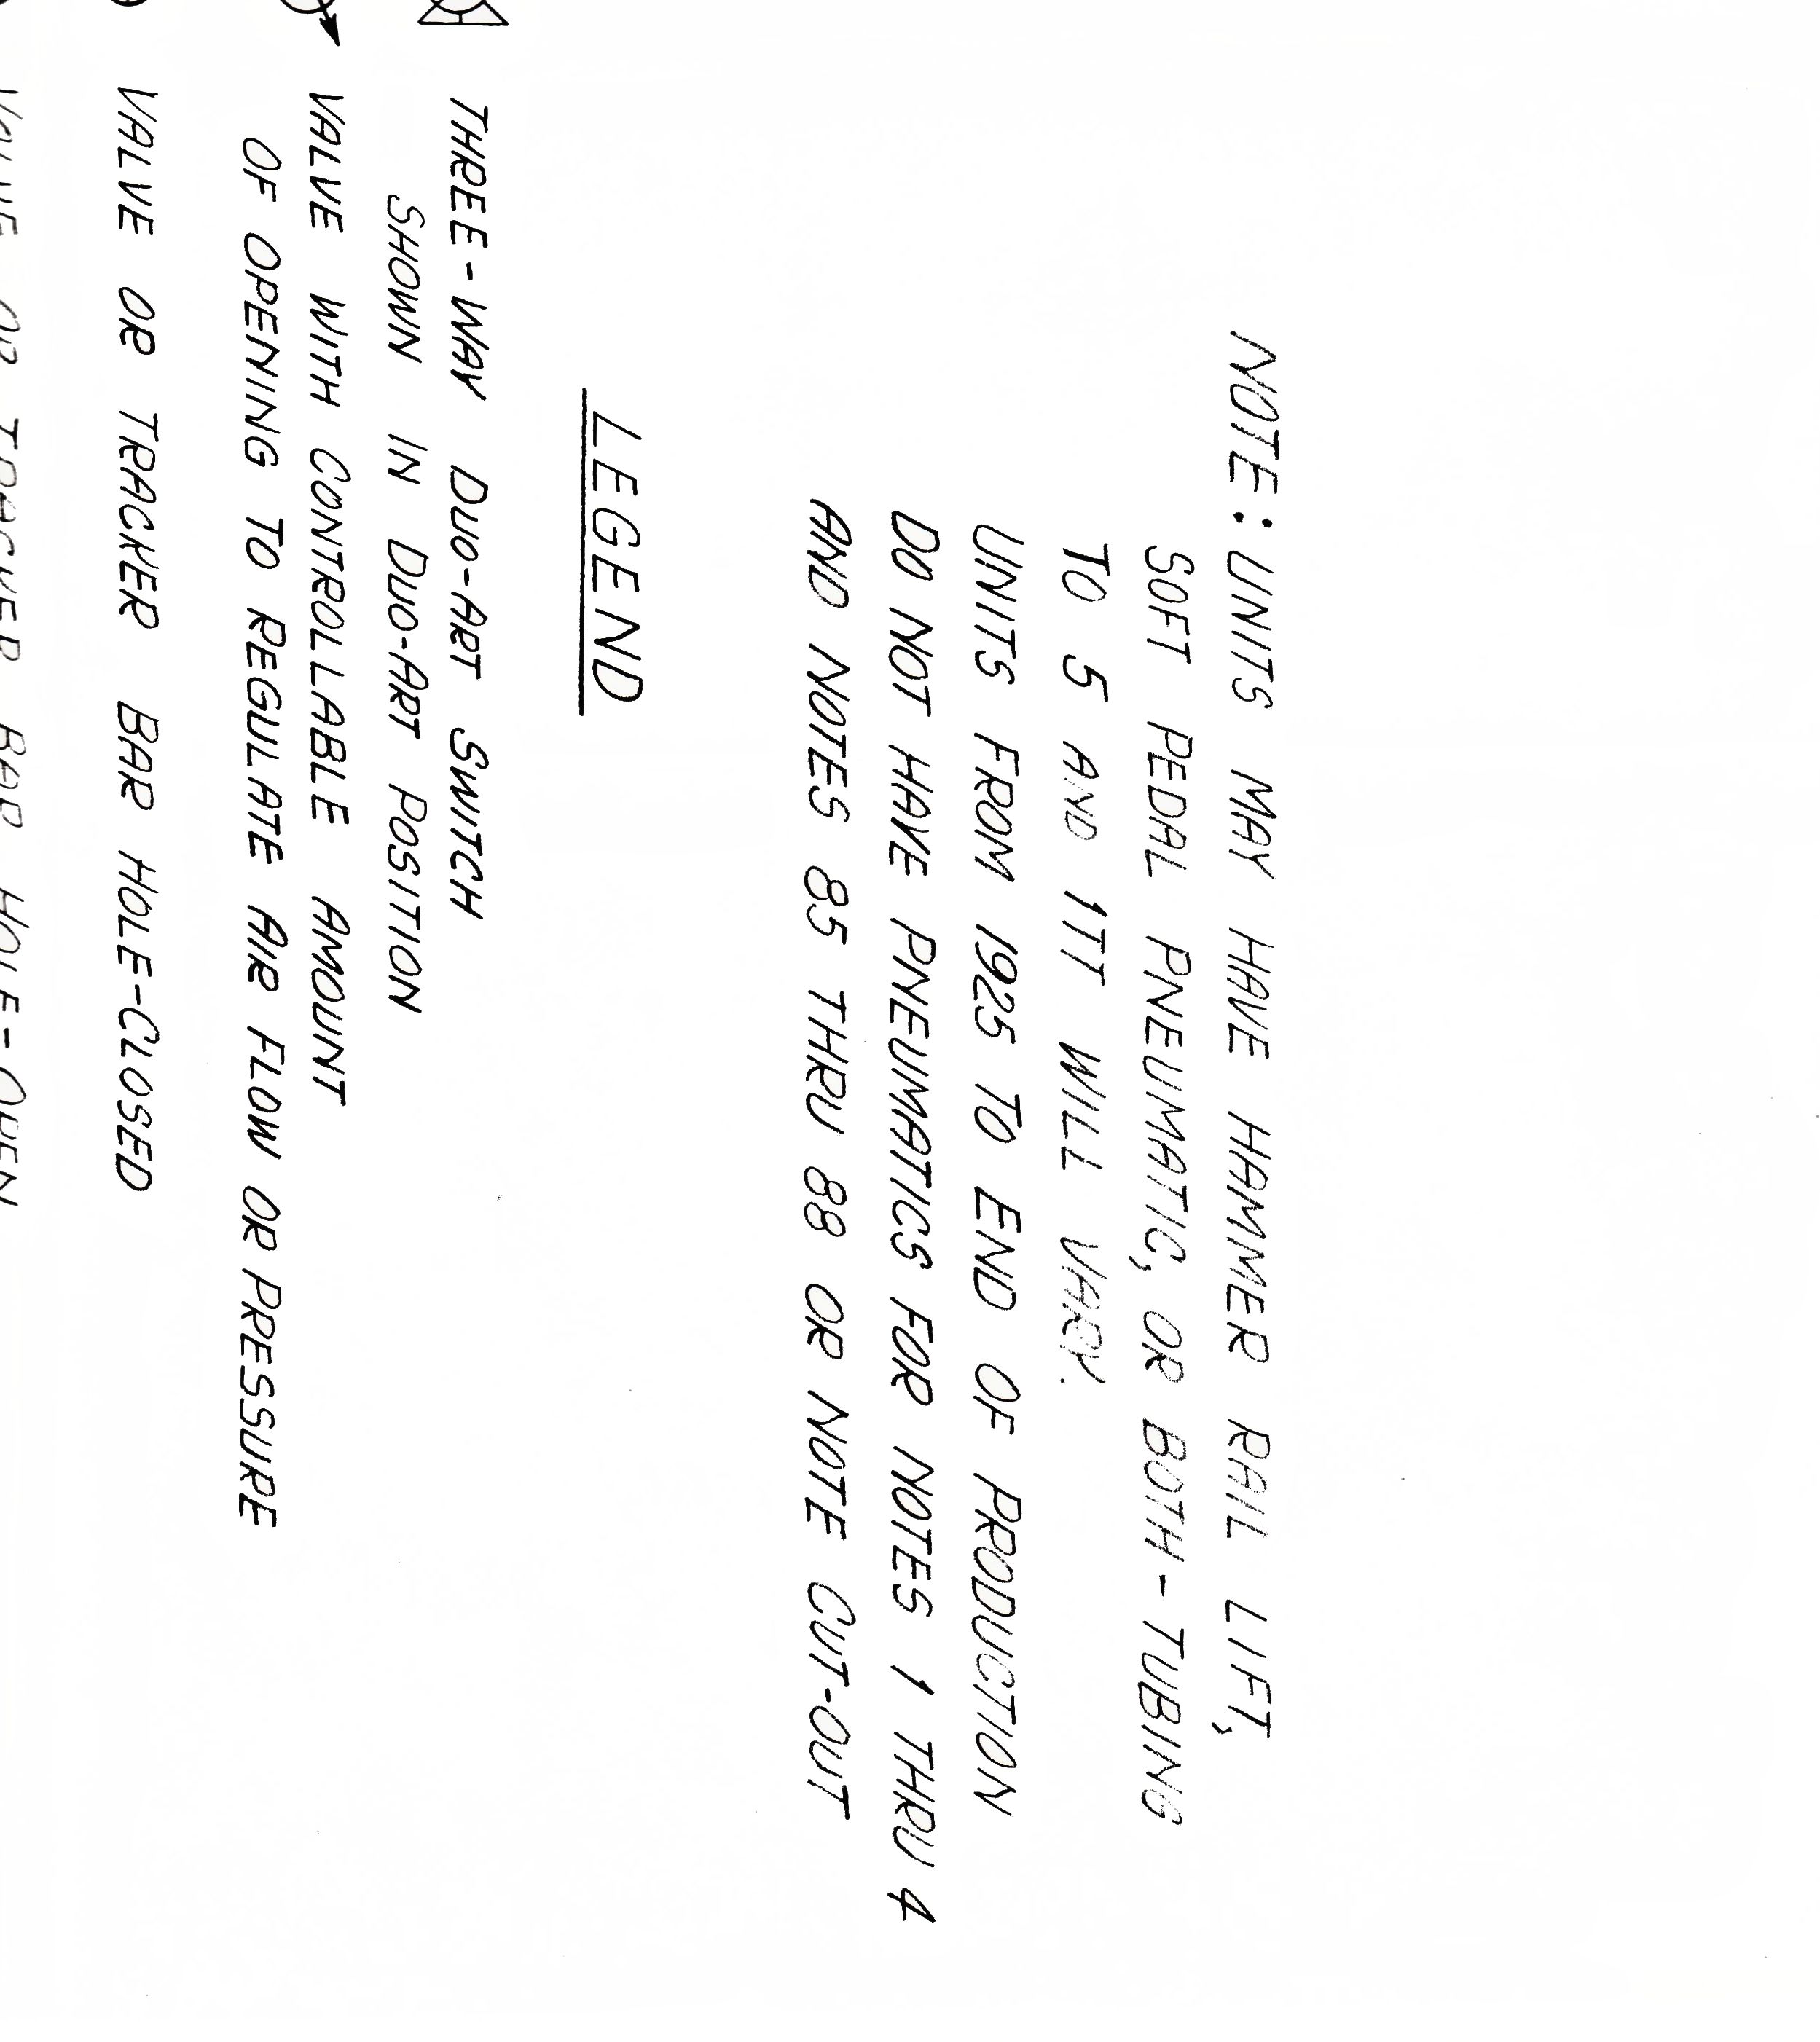 NOTE: UNITS MAY HAVE HAMMER RAIL LIFT,
SOFT PEDAL PNEUMATIC, OR BOTH-TUBING
TO 5 AND 1TT WILL VARY.
UNITS FROM 1925 TO END OF PRODUCTION
DO NOT HAVE PNEUMATICS FOR NOTES 1 THRU 4
AND NOTES 85 THRU 88 OR NOTE CUT-OUT
LEGEND
THREE-WAY DUO-ART SWITCH
SHOWN IN DUO-ART POSITION
VALVE WITH CONTROLLABLE AMOUNT
OF OPENING TO REGULATE AIR FLOW OR PRESSURE
VALVE OR TRACKER BAR HOLE-CLOSED
VALVE OR TRACKER BAR HOLE-OPEN